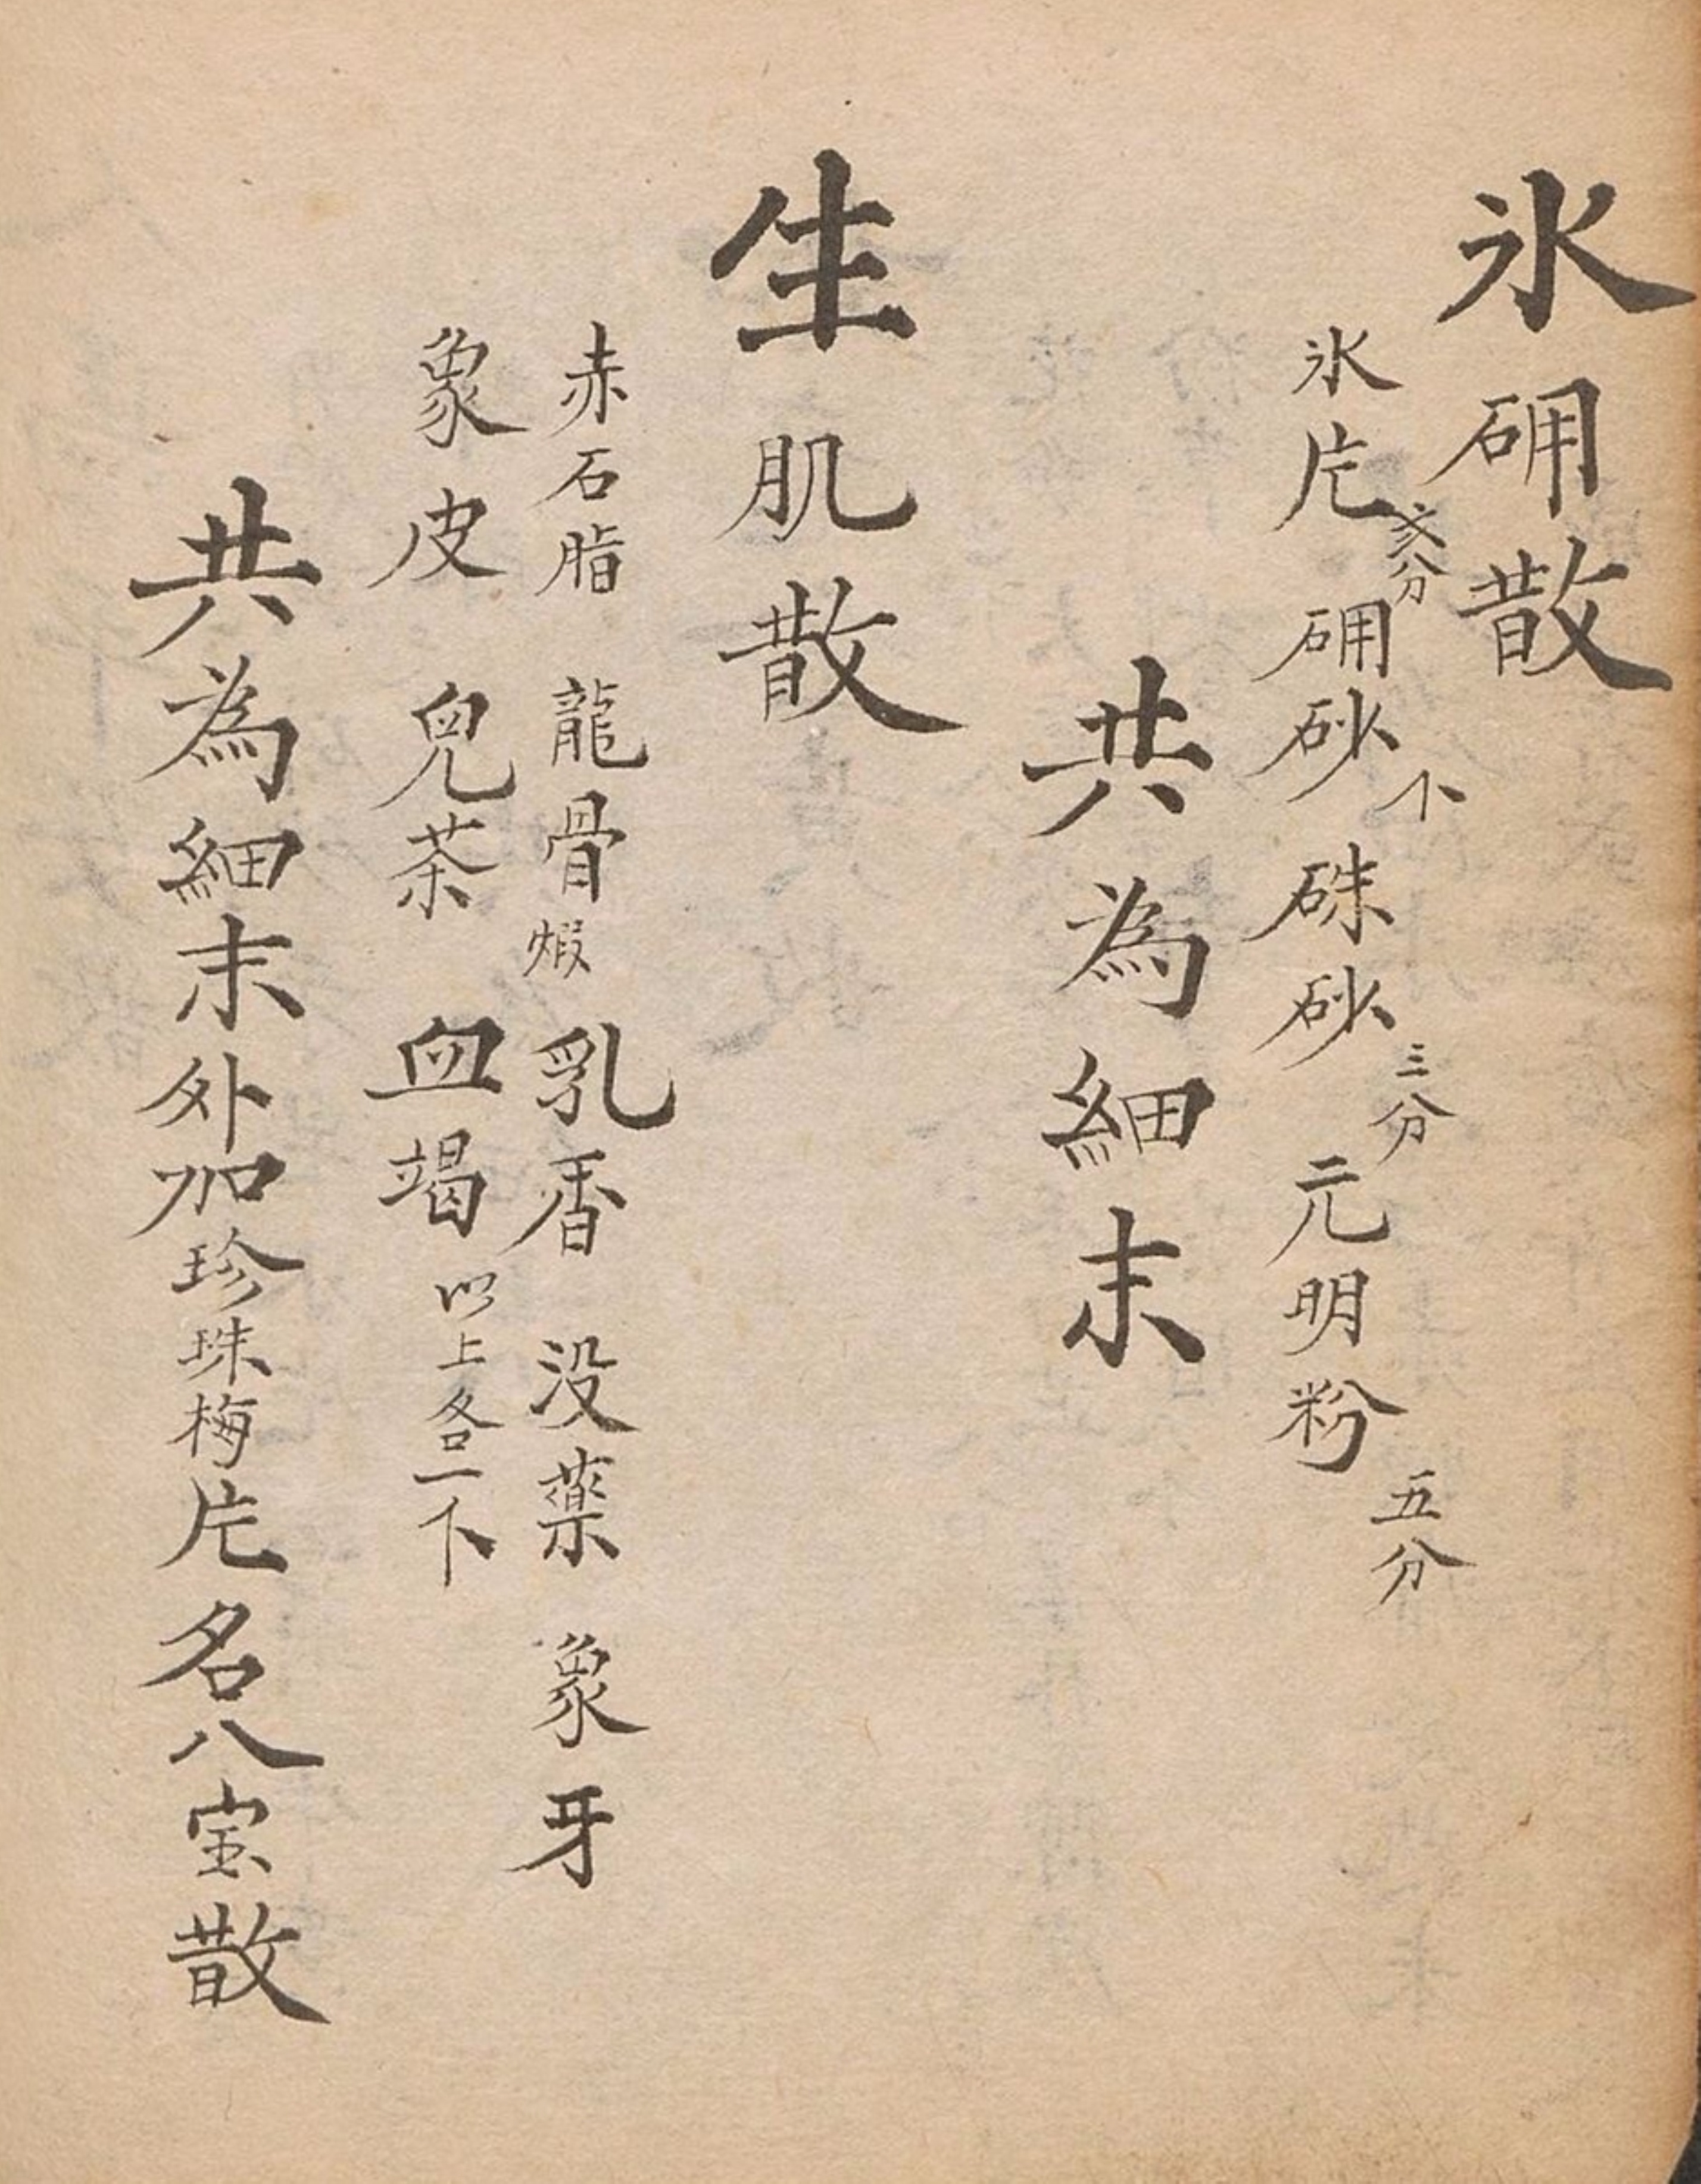 氷硼散
氷片 弍分 硼砂 个 硃砂 三分 元明粉 五分
共為細末
生肌散
赤石脂 龍骨 煆 乳香 没薬 象牙
象皮 兒茶 血竭 以上各一下
共為細末外加珍珠梅片名八宝散